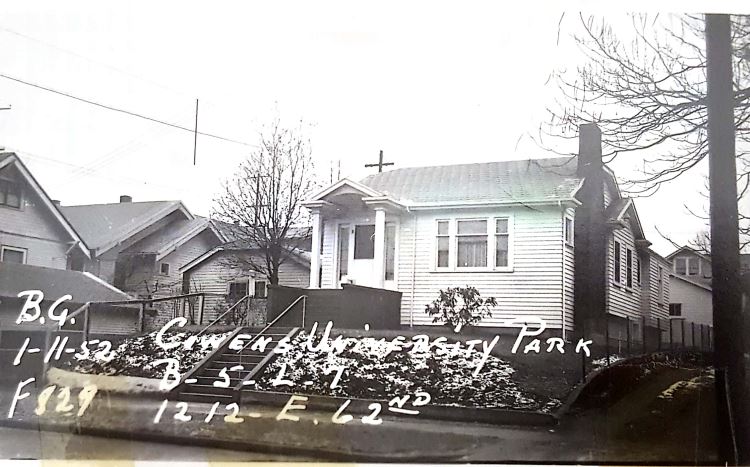 B.G.
1-11-52
F829
Cowens University Park
B-5-L-7
1212-E.62ND